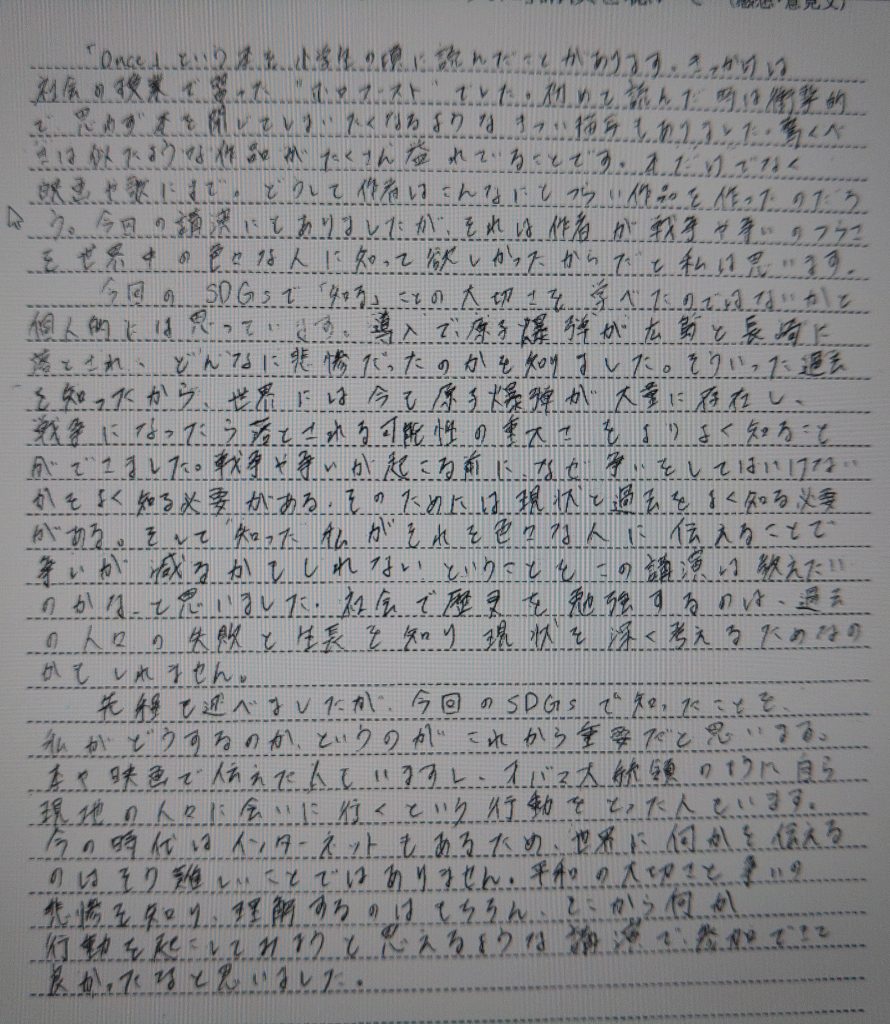 (感想・意見文)
「Once」という本を小学生の頃に読んだことがあります。きっかけは
社会の授業で習った"ホロコースト"でした。初めて読んだ時は衝撃的
で思わず本を閉じてしまいたくなるようなきつい描写もありました。驚くべ
きは似たような作品がたくさん溢れていることです。本だけでなく
映画や歌にまで。どうして作者はこんなにもつらい作品を作ったのだろ
う。今回の講演にもありましたが、それは作者が戦争や争いのつらさ
を世界中の色々な人に知って欲しかったからだと私は思います。
今回のSDGsで「知る」ことの大切さを学べたのではないかと
個人的には思っています。導入で、原子爆弾が広島と長崎に
落とされ、どんなに悲惨だったのかを知りました。そういった過去
を知ったから、世界には今も原子爆弾が大量に存在し、
戦争になったら落とされる可能性の重大さをよりよく知ること
ができました。戦争や争いが起こる前に、なぜ争いをしてはいけない
かをよく知る必要がある。そのためには現状と過去をよく知る必要
がある。そして"知った"私がそれを色々な人に伝えることで
争いが減るかもしれないということをこの講演は教えたい
のかな、と思いました。社会で歴史を勉強するのは、過去
の人々の失敗と生長を知り現状を深く考えるためなの
かもしれません。
先程も述べましたが、今回のSDGsで知ったことを、
私がどうするのか、というのがこれから重要だと思いまる。
本や映画で伝えた人もいますし、オバマ大統領のように自ら
現地の人々に会いに行くという行動をとった人もいます。
今の時代はインターネットもあるため、世界に何かを伝える
のはそう難しいことではありません。平和の大切さと争いの
悲惨を知り、理解するのはもちろん、そこから何か
行動を起こしてみようと思えるような講演で、参加できて
良かったなと思いました。